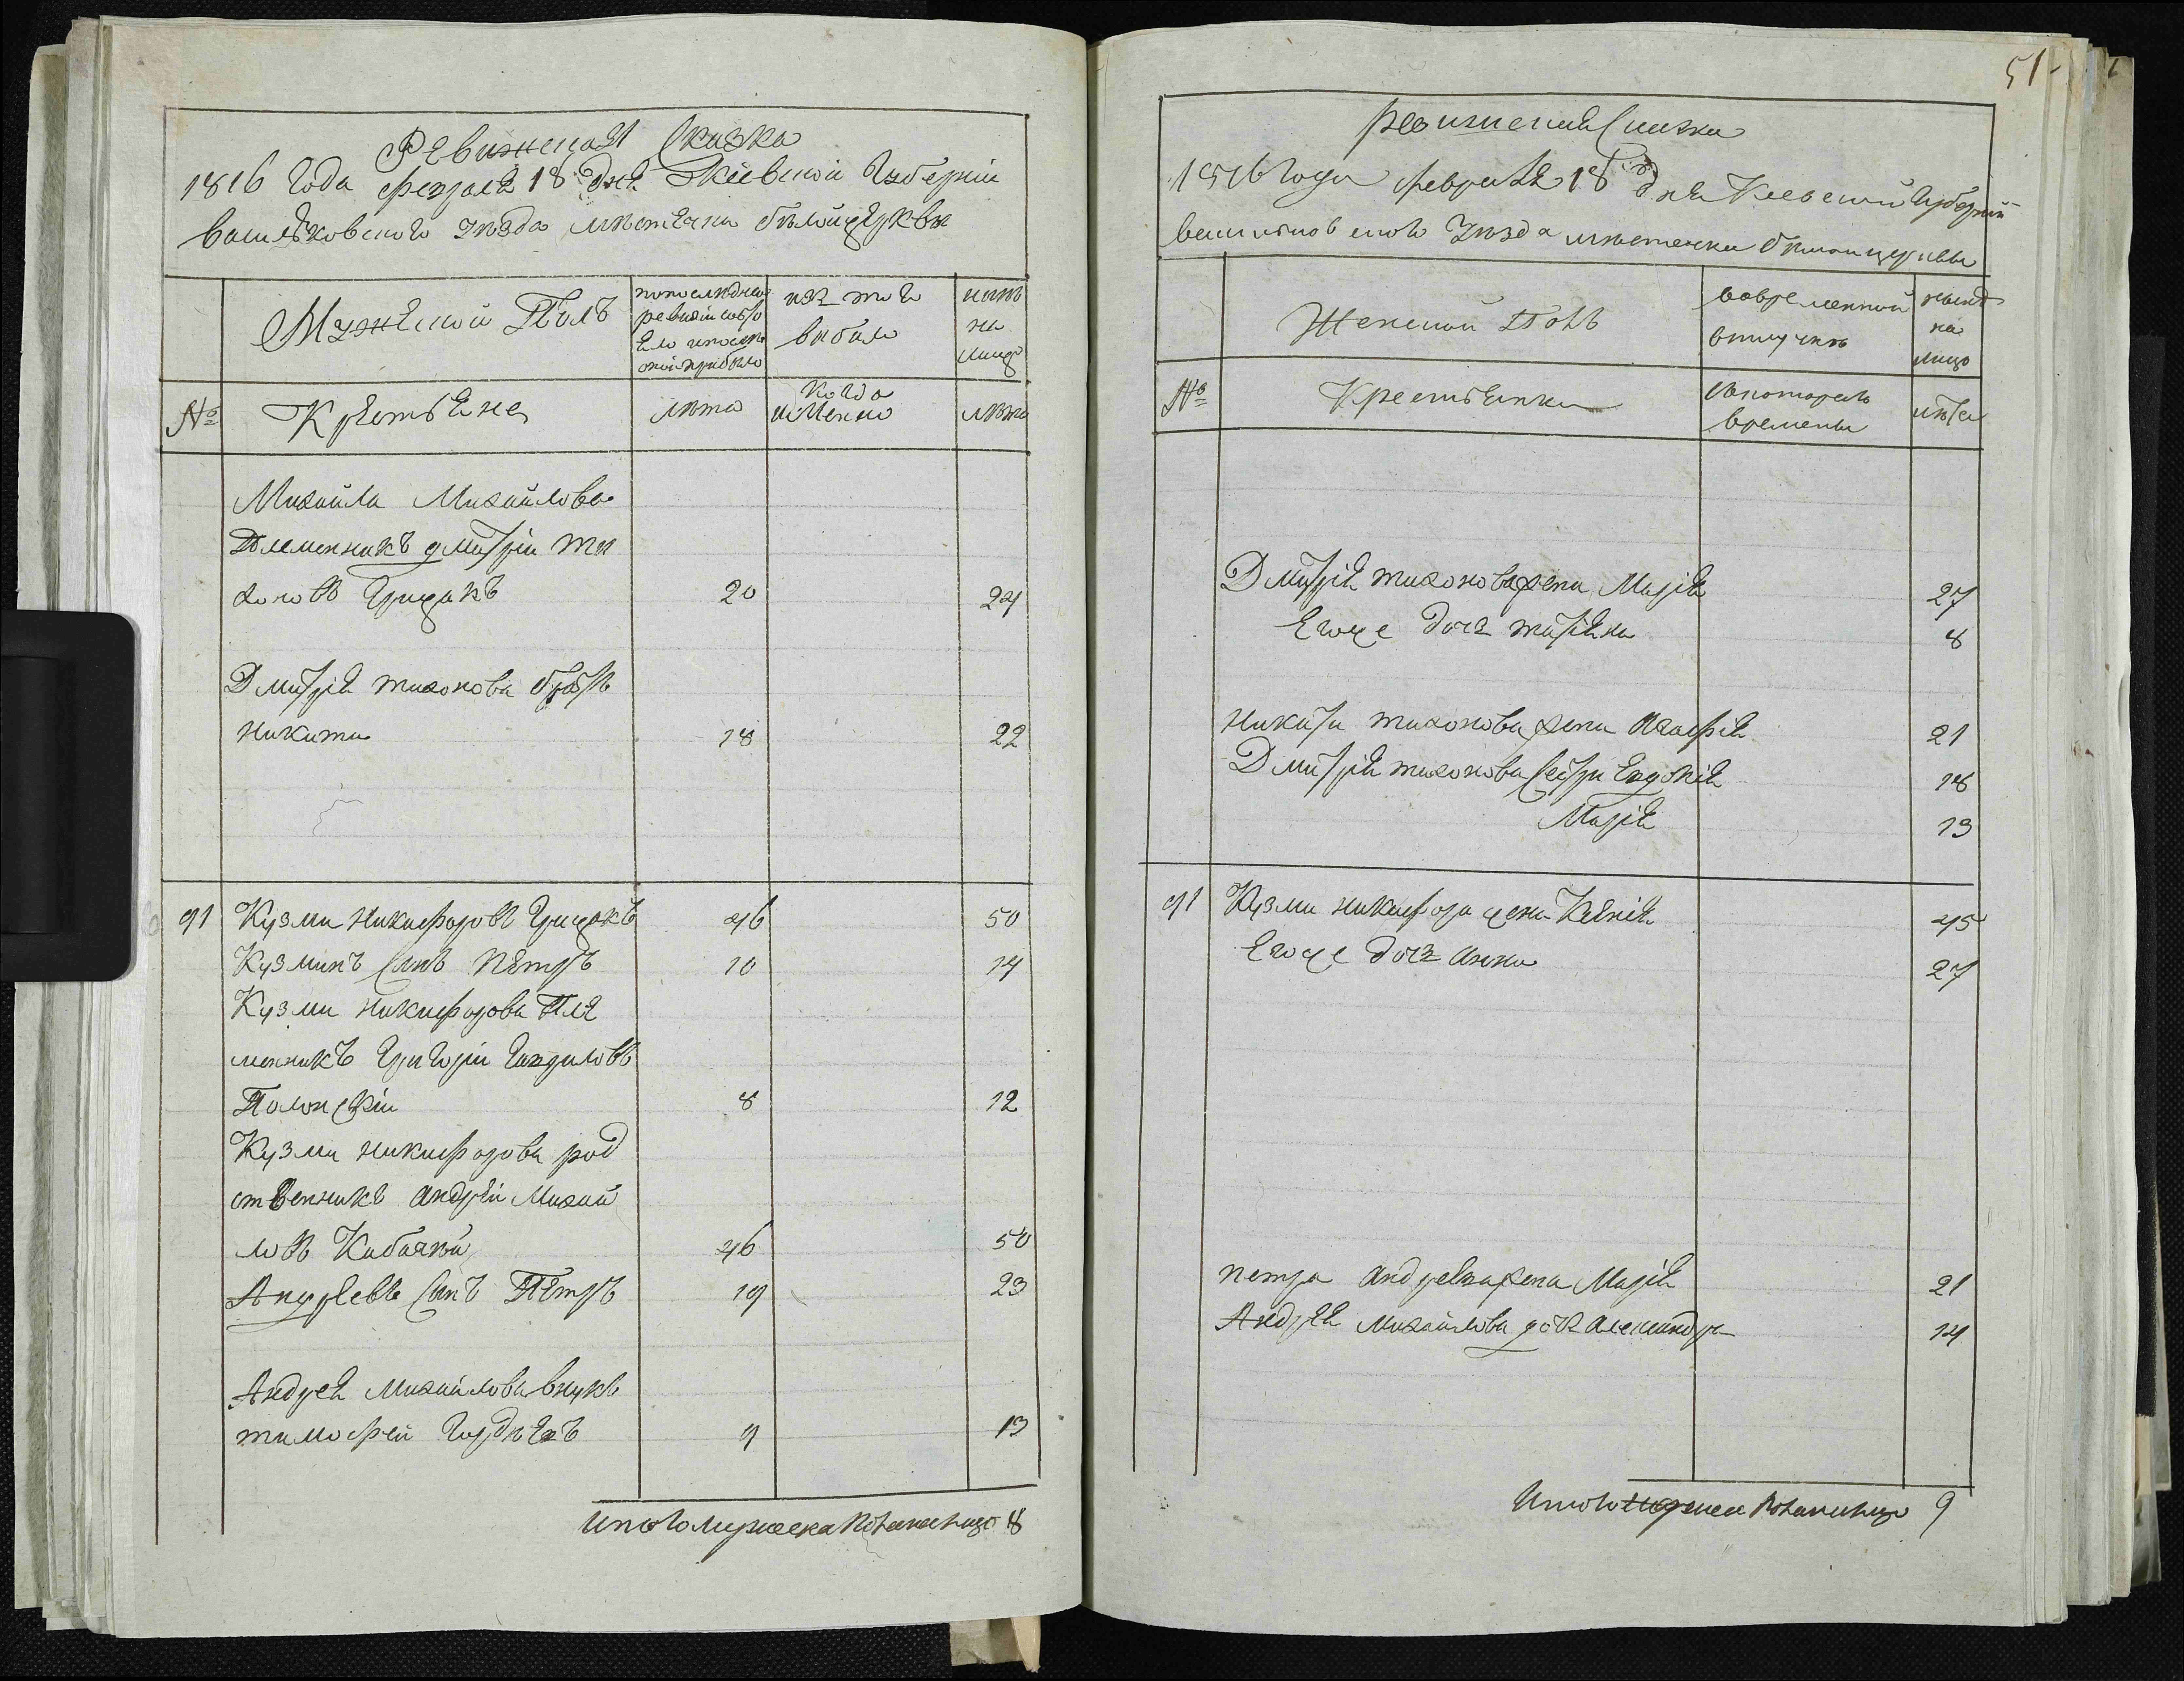 Ревижская Сказка
1816 Года февраля 18 дня Кіевской Губерніи
василковского уезда местечка белойцеркви
Мужеской Полъ
по последней ревизіи состо
яло и после
оной прибыло
изъ того
выбыло
ныне
на
лицо
№
Крестьяне
лета
когда
именно
лета
Михайла Михайлова
Племенникъ дмитріи ти
хоновъ Грицакъ 20 24
Дмитрія тихонова братъ
никита 18 22
91 Кузма никифоровъ Грицакъ 46 50
Кузминъ Синъ Петръ 10 14
Кузми никифорова Пле
менникъ Григоріи Гавриловъ
Полонскіи 8 12
Кузми никифорова род
ственникъ андрей Михай
ловъ 46 50
Андреевъ Синъ Петръ 19 23
Андрея Михайлова внукъ
тимофей 9 13
Итого мужеска пола налицо 8
51
ревизская Сказка
1816 Года февраля 18 дня Киевской Губерніи
василковского уезда местечка белойцеркви
Женской Полъ
вовременной
отлучке
ныне
на
лицо
№
Крестьянки
съ которого
времены
лета
Дмитрія тихонова жена Марія 27
Егоже дочъ татіяна 8
никиты тихонова жена Агафія 21
Дмитрія тихонова сестри Евдокія 18
Марія 13
91 Кузми никифора жена Ксенія 45
Егоже дочъ анна 27
петра Андреева жена Марія 21
Андрея Михайлова дочъ александра 14
Итого женска пола налицо 9